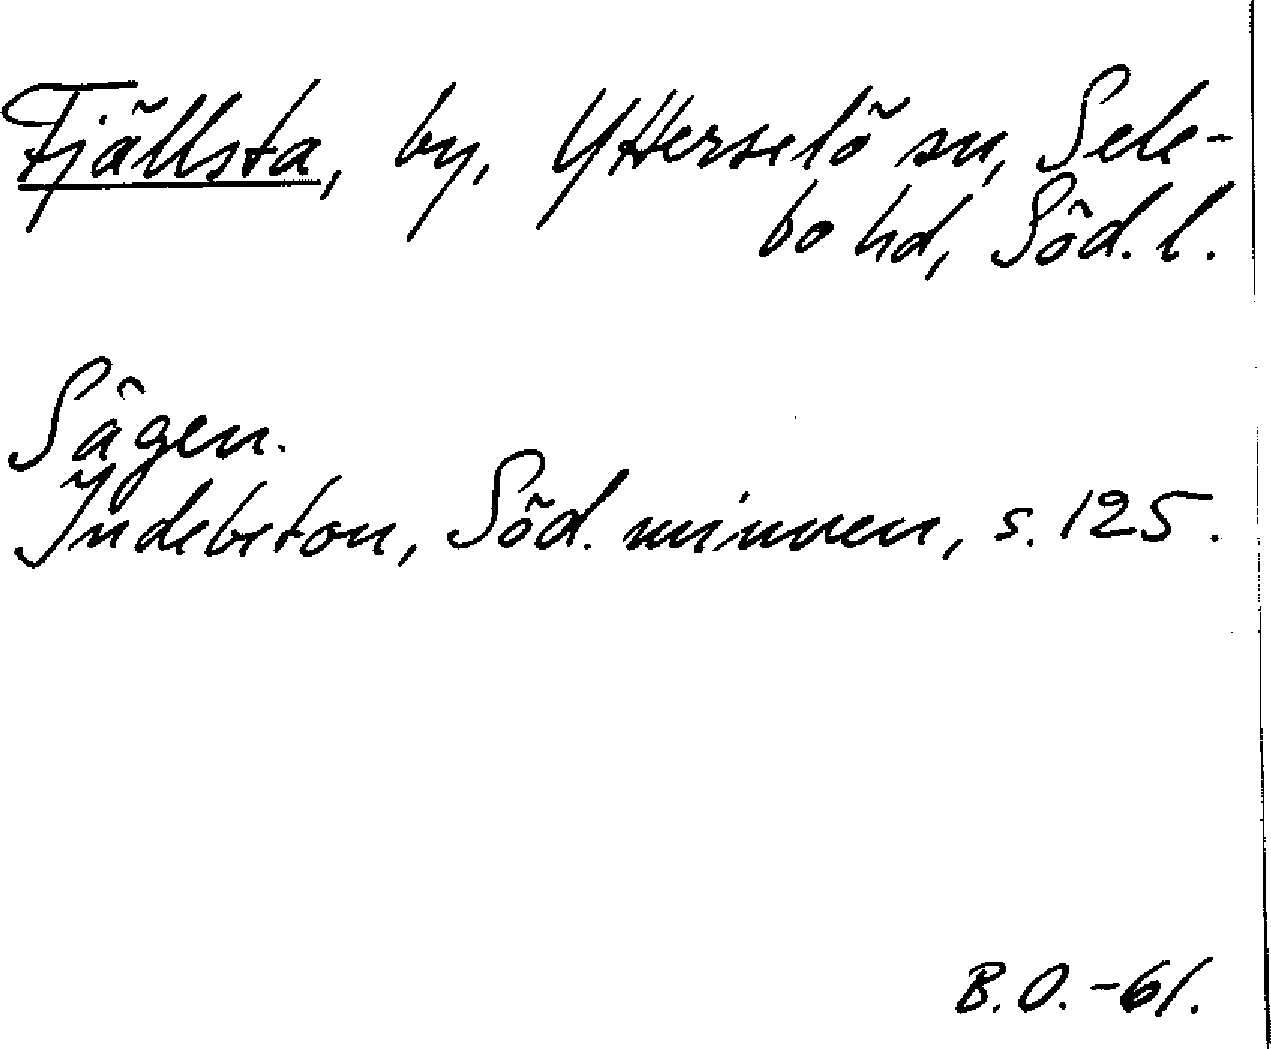 Fjällsta, by, Ytterselö sn, Sele-
bo hd, Söd. l.
Sägen.
Indebetou, Söd. minnen, s. 125.
B.O. -61.